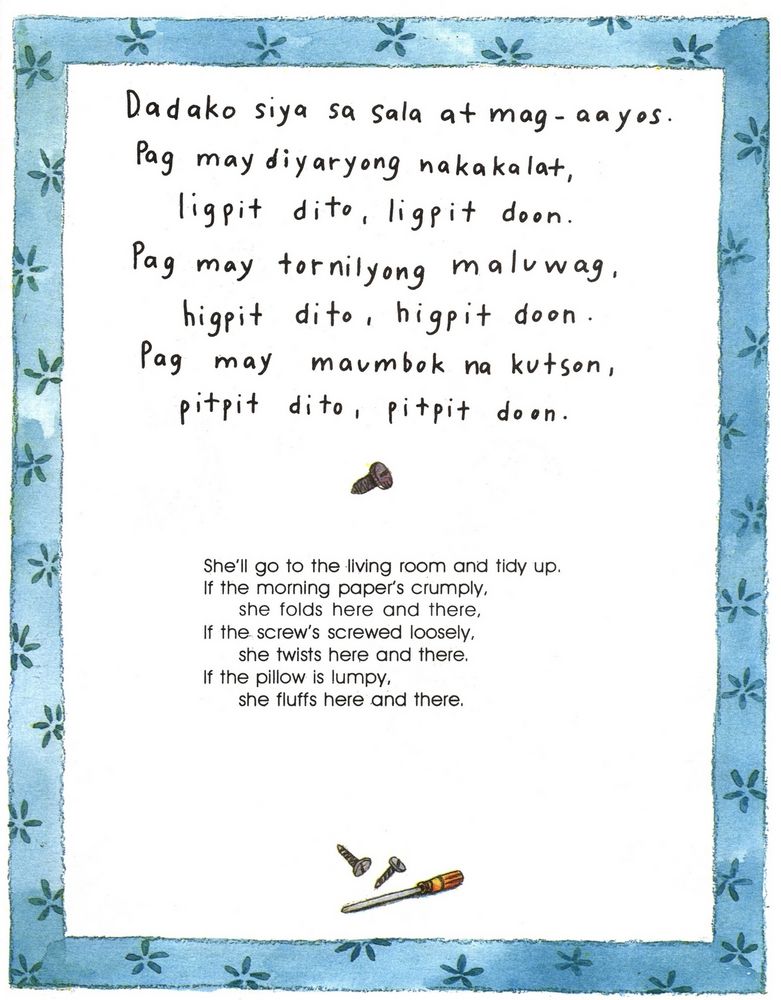 Dadako siya sa sala at mag-aayos.
Pag may diyaryong nakakalat,
ligpit dito, ligpit doon.
Pag may tornilyong maluwag,
higpit dito, higpit doon.
Pag may maumbok na kutson,
pitpit dito, pitpit doon.
She'll go to the living room and tidy up.
If the morning paper's crumply,
she folds here and there,
If the screw's screwed loosely,
she twists here and there.
If the pillow is lumpy,
she fluffs here and there.